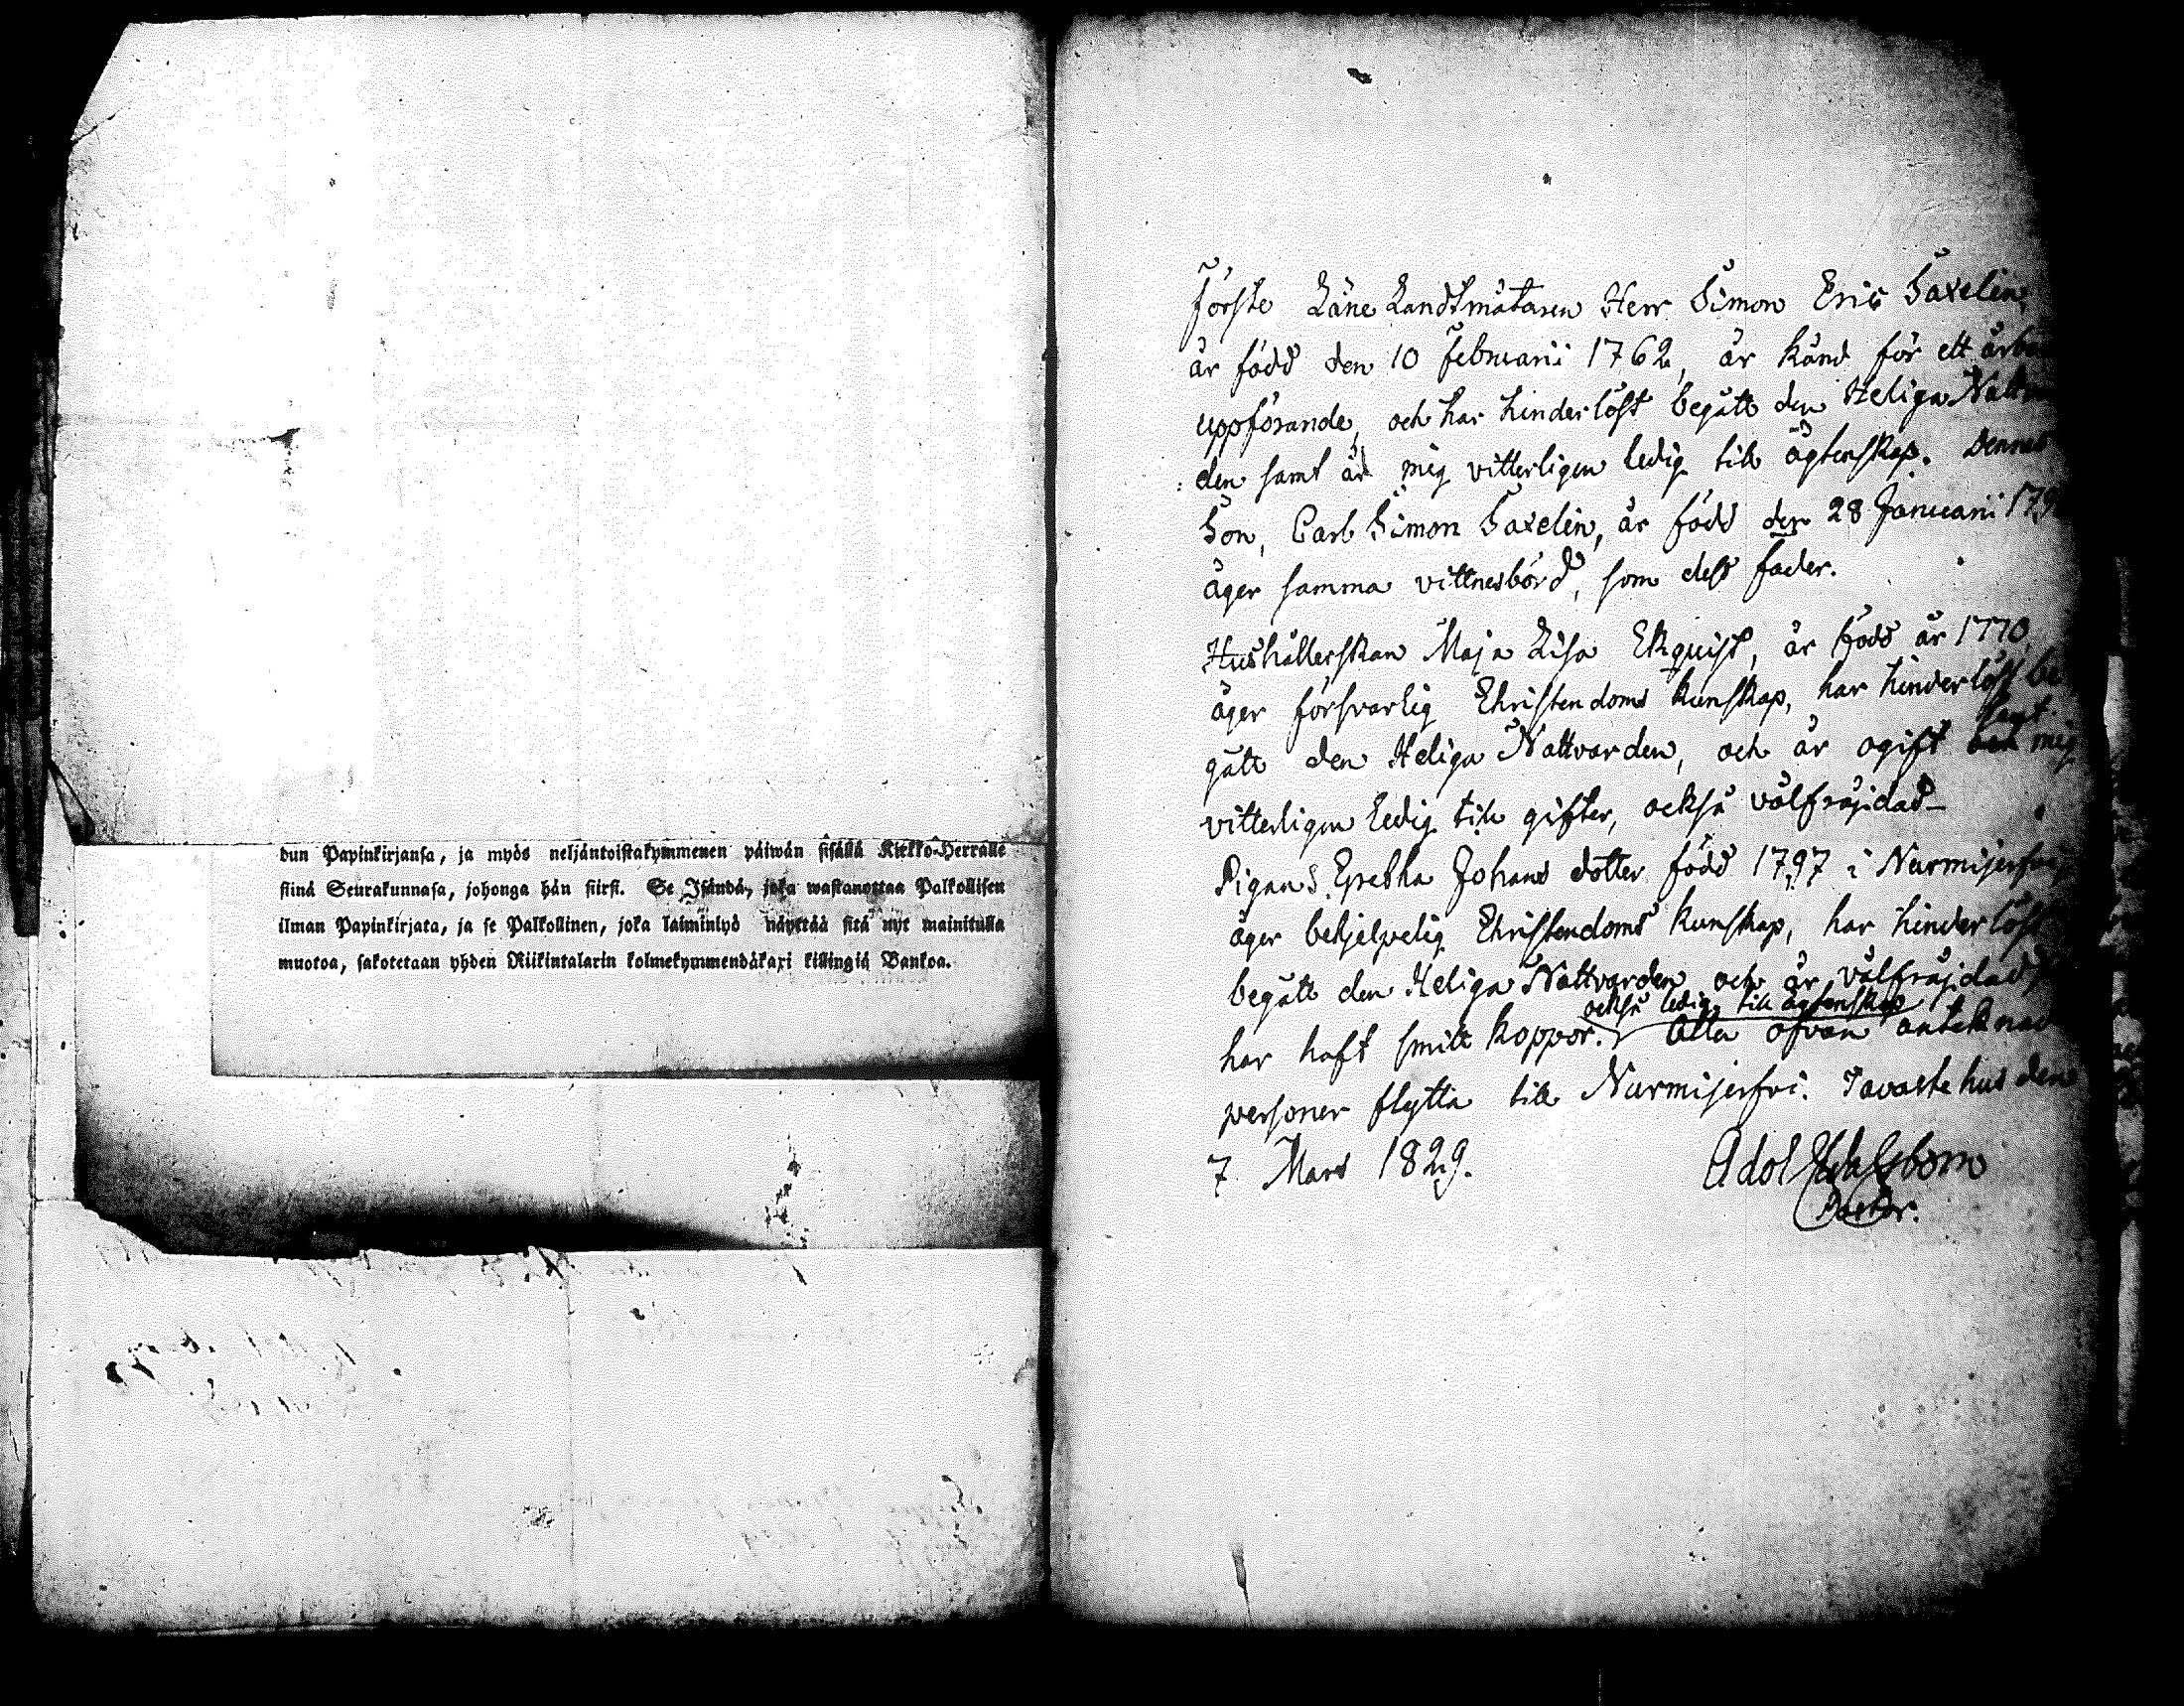 dun Papinkirjansa, ja myös neljäntoistakymmenen päiwän sisällä Kirkko-Herralle
siinä Seurakunnasa, johonga hän siirsi. Se Isändä, joka wastanottaa Palkollisen
ilman Papinkirjata, ja se Palkollinen, joka laiminlyö näyttää sitä nyt mainitulla
muotoa, sakotetaan yhden Riikintalarin kolmekymmendäkaxi killingiä Bankoa.
Förste Läne Landtmätaren Herr Simon Eric Saxelin,
är född den 10 Februarii 1762, är känd för ett
uppförande, och har hinderlöst begått den Heliga
den samt är mig vitterligen ledig till ägtenskap. Dennes
Son, Carl Simon Saxelin, är född den 28 Januarii
äger samma vittnesbörd, som dess fader.
Hushållerskan Maja Lisa Ekquist, är född år 1770,
äger försvarlig Christendoms kunskap, har hinderlöst be
gått den Heliga Nattvarden, och är ogift samt mig
vitterligen ledig till gifter, också välfräjdad
Pigan Gretha Johans dotter född 1797 i
äger behjelpelig Christendoms kunskap, har hinderlöst
begått den Heliga Nattvarden och är välfräjdad,
också ledig till ägtenskap
har haft smitt koppor. Alla ofvan
personer flytta till Nurmijerfvi. Tavastehus den
7 Mars 1829.
Pastor.